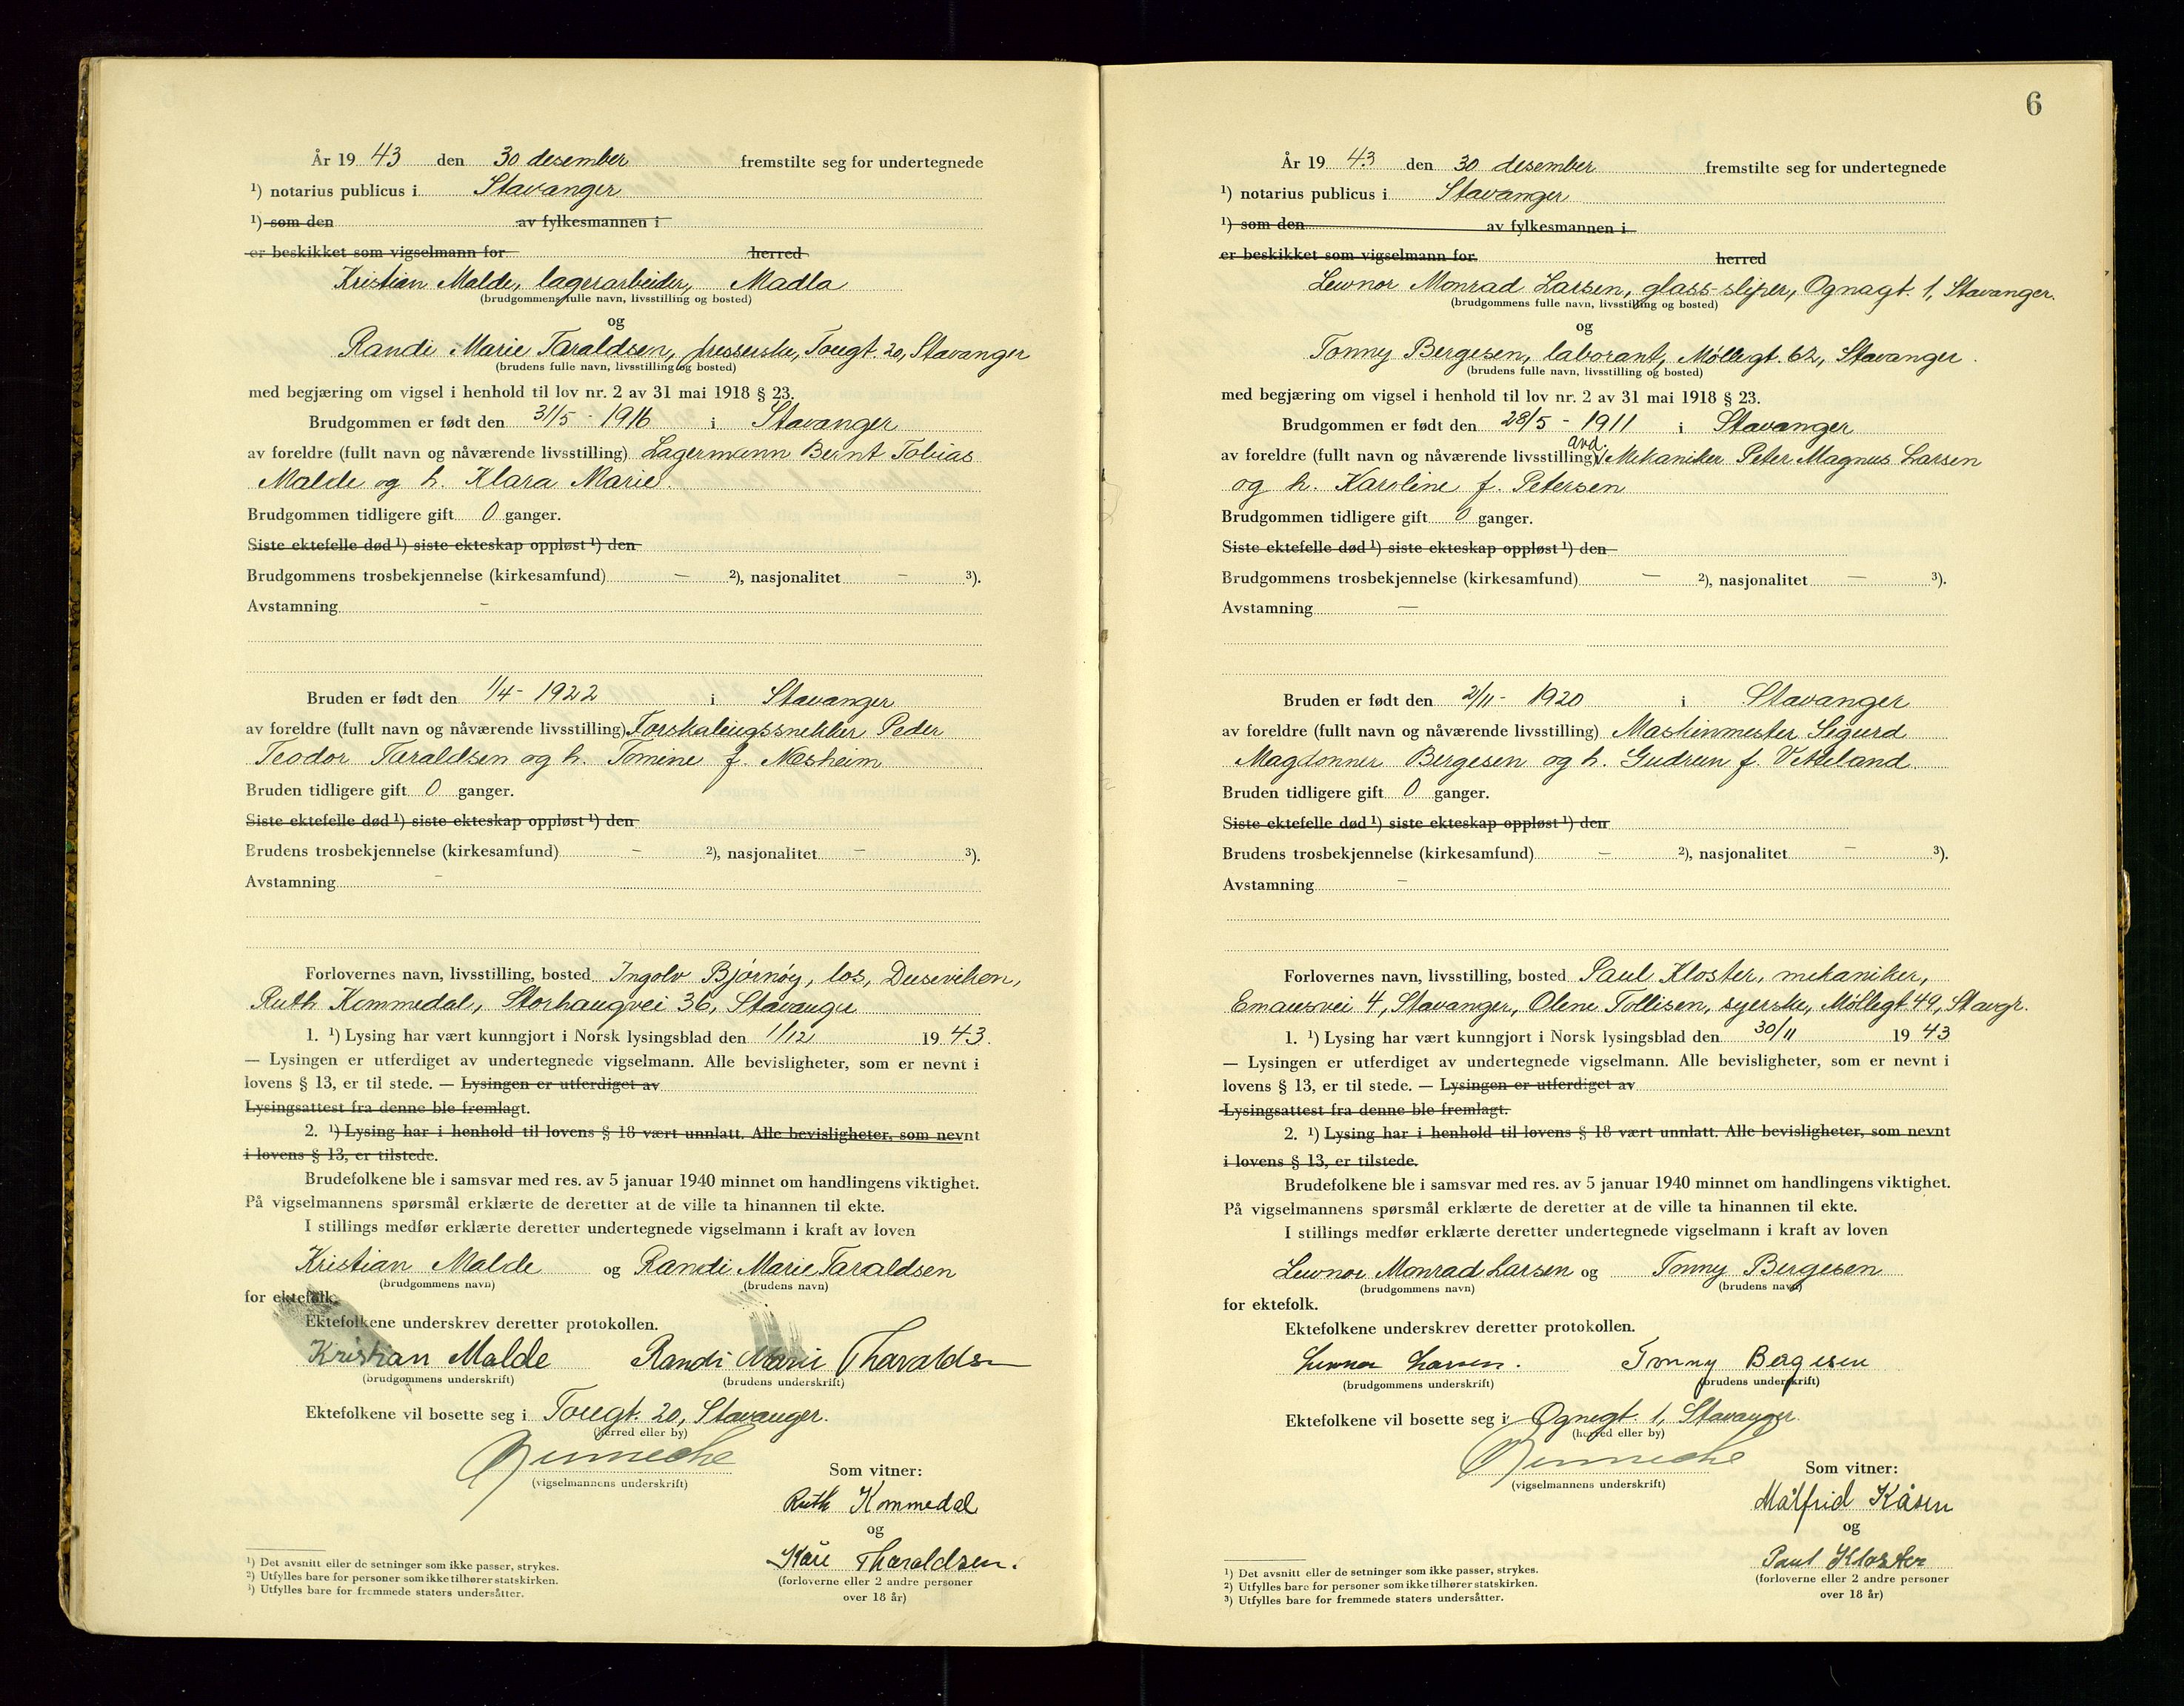 År 19 43 den 30 desember fremstilte seg for undertegnede
¹) notarius publicus i Stavanger
¹) som den av fylkesmannen i
er beskikket som vigselmann for herred
Kristian Malde, lagerarbeider, Madla
(brudgommens fulle navn, livsstilling og bosted)
og
Randi Marie Taraldsen, presserske, Tougt. 20, Stavanger
(brudens fulle navn, livsstilling og bosted)
med begjæring om vigsel i henhold til lov nr. 2 av 31 mai 1918 § 23.
Brudgommen er født den 31/5 - 1916 i Stavanger
av foreldre (fullt navn og nåværende livsstilling) Lagermann Bernt Tobias
Malde og h. Klara Marie.
Brudgommen tidligere gift 0 ganger.
Siste ektefelle død ¹) siste ekteskap oppløst ¹) den
Brudgommens trosbekjennelse (kirkesamfund) — ²), nasjonalitet — ³).
Avstamning —
Bruden er født den 1/4 - 1922 i Stavanger
av foreldre (fullt navn og nåværende livsstilling) Forskalingssnekker Peder
Teodor Taraldsen og h. Tomine f. Nesheim
Bruden tidligere gift 0 ganger.
Siste ektefelle død ¹) siste ekteskap oppløst ¹) den
Brudens trosbekjennelse (kirkesamfund) — ²), nasjonalitet — ³).
Avstamning —
Forlovernes navn, livsstilling, bosted Ingolv Bjørnøy, los, Duseviken,
Ruth Kommedal, Storhaugvei 36, Stavanger
1. ¹) Lysing har vært kunngjort i Norsk lysingsblad den 1/12 19 43.
— Lysingen er utferdiget av undertegnede vigselmann. Alle bevisligheter, som er nevnt i
lovens § 13, er til stede. — Lysingen er utferdiget av
Lysingsattest fra denne ble fremlagt.
2. ¹) Lysing har i henhold til lovens § 18 vært unnlatt. Alle bevisligheter, som nevnt
i lovens § 13, er tilstede.
Brudefolkene ble i samsvar med res. av 5 januar 1940 minnet om handlingens viktighet.
På vigselmannens spørsmål erklærte de deretter at de ville ta hinannen til ekte.
I stillings medfør erklærte deretter undertegnede vigselmann i kraft av loven
Kristian Malde og Randi Marie Taraldsen
(brudgommens navn) (brudens navn)
for ektefolk.
Ektefolkene underskrev deretter protokollen.
Kristian Malde Randi Marie Tharaldsen
(brudgommens underskrift) (brudens underskrift)
Ektefolkene vil bosette seg i Tougt. 20, Stavanger.
(herred eller by)
(vigselmannens underskrift)
Som vitner:
Ruth Kommedal
og
Kåre Tharaldsen.
(forloverne eller 2 andre personer
over 18 år)
¹) Det avsnitt eller de setninger som ikke passer, strykes.
²) Utfylles bare for personer som ikke tilhører statskirken.
³) Utfylles bare for fremmede staters undersåtter.
6
År 19 43 den 30 desember fremstilte seg for undertegnede
¹) notarius publicus i Stavanger
¹) som den av fylkesmannen i
er beskikket som vigselmann for herred
Lewnor Monrad Larsen, glass-sliper, Ognagt. 1, Stavanger.
(brudgommens fulle navn, livsstilling og bosted)
og
Tonny Bergesen, laborant, Møllegt. 62, Stavanger.
(brudens fulle navn, livsstilling og bosted)
med begjæring om vigsel i henhold til lov nr. 2 av 31 mai 1918 § 23.
Brudgommen er født den 28/5 - 1911 i Stavanger
av foreldre (fullt navn og nåværende livsstilling) avd. Mekaniker Peter Magnus Larsen
og h. Karoline f. Petersen
Brudgommen tidligere gift 0 ganger.
Siste ektefelle død ¹) siste ekteskap oppløst ¹) den
Brudgommens trosbekjennelse (kirkesamfund) — ²), nasjonalitet — ³).
Avstamning —
Bruden er født den 2/11 - 1920 i Stavanger
av foreldre (fullt navn og nåværende livsstilling) Maskinmester Sigurd
Magdonner Bergesen og h. Gudrun f. Vetteland
Bruden tidligere gift 0 ganger.
Siste ektefelle død ¹) siste ekteskap oppløst ¹) den
Brudens trosbekjennelse (kirkesamfund) — ²), nasjonalitet — ³).
Avstamning —
Forlovernes navn, livsstilling, bosted Paul Kloster, mekaniker,
Emausvei 4, Stavanger, Olene Tollisen, syerske, Møllegt. 49, Stavgr.
1. ¹) Lysing har vært kunngjort i Norsk lysingsblad den 30/11 19 43
— Lysingen er utferdiget av undertegnede vigselmann. Alle bevisligheter, som er nevnt i
lovens § 13, er til stede. — Lysingen er utferdiget av
Lysingsattest fra denne ble fremlagt.
2. ¹) Lysing har i henhold til lovens § 18 vært unnlatt. Alle bevisligheter, som nevnt
i lovens § 13, er tilstede.
Brudefolkene ble i samsvar med res. av 5 januar 1940 minnet om handlingens viktighet.
På vigselmannens spørsmål erklærte de deretter at de ville ta hinannen til ekte.
I stillings medfør erklærte deretter undertegnede vigselmann i kraft av loven
Lewnor Monrad Larsen og Tonny Bergesen
(brudgommens navn) (brudens navn)
for ektefolk.
Ektefolkene underskrev deretter protokollen.
Lewnor Larsen. Tonny Bergesen
(brudgommens underskrift) (brudens underskrift)
Ektefolkene vil bosette seg i Ognegt. 1, Stavanger.
(herred eller by)
(vigselmannens underskrift)
Som vitner:
Målfrid Kåsen
og
Paul Kloster
(forloverne eller 2 andre personer
over 18 år)
¹) Det avsnitt eller de setninger som ikke passer, strykes.
²) Utfylles bare for personer som ikke tilhører statskirken.
³) Utfylles bare for fremmede staters undersåtter.